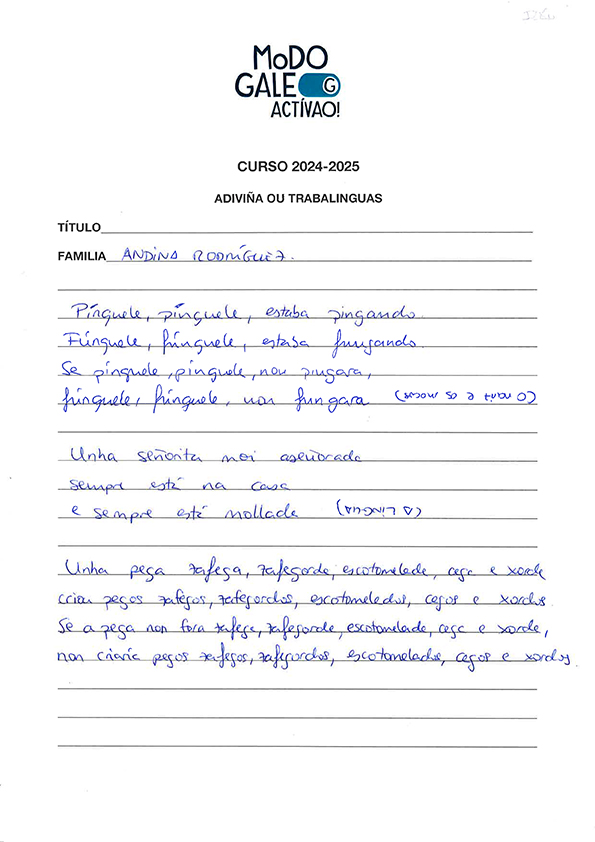 MoDO
GALEG
ACTÍVAO!
CURSO 2024-2025
ADIVIÑA OU TRABALINGUAS
TÍTULO
FAMILIA ANDINA RODRÍGUEZ.
Pínguele, pínguele, estaba pingando.
Fúnguele, fúnguele, estaba fungando.
Se pínguele, pínguele, non pingara,
fúnguele, fúnguele, non fungara (O nariz e os mocos)
Unha señorita moi aseñorada
sempre está na casa
e sempre está mollada (A LINGUA)
Unha pega zafega, zafegorda, escotomelada, cega e xorda
criou pegos zafegos, zafegordos, escotomelados, cegos e xordos
Se a pega non fora zafega, zafegorda, escotomelada, cega e xorda,
non criaría pegos zafegos, zafegordos, escotomelados, cegos e xordos